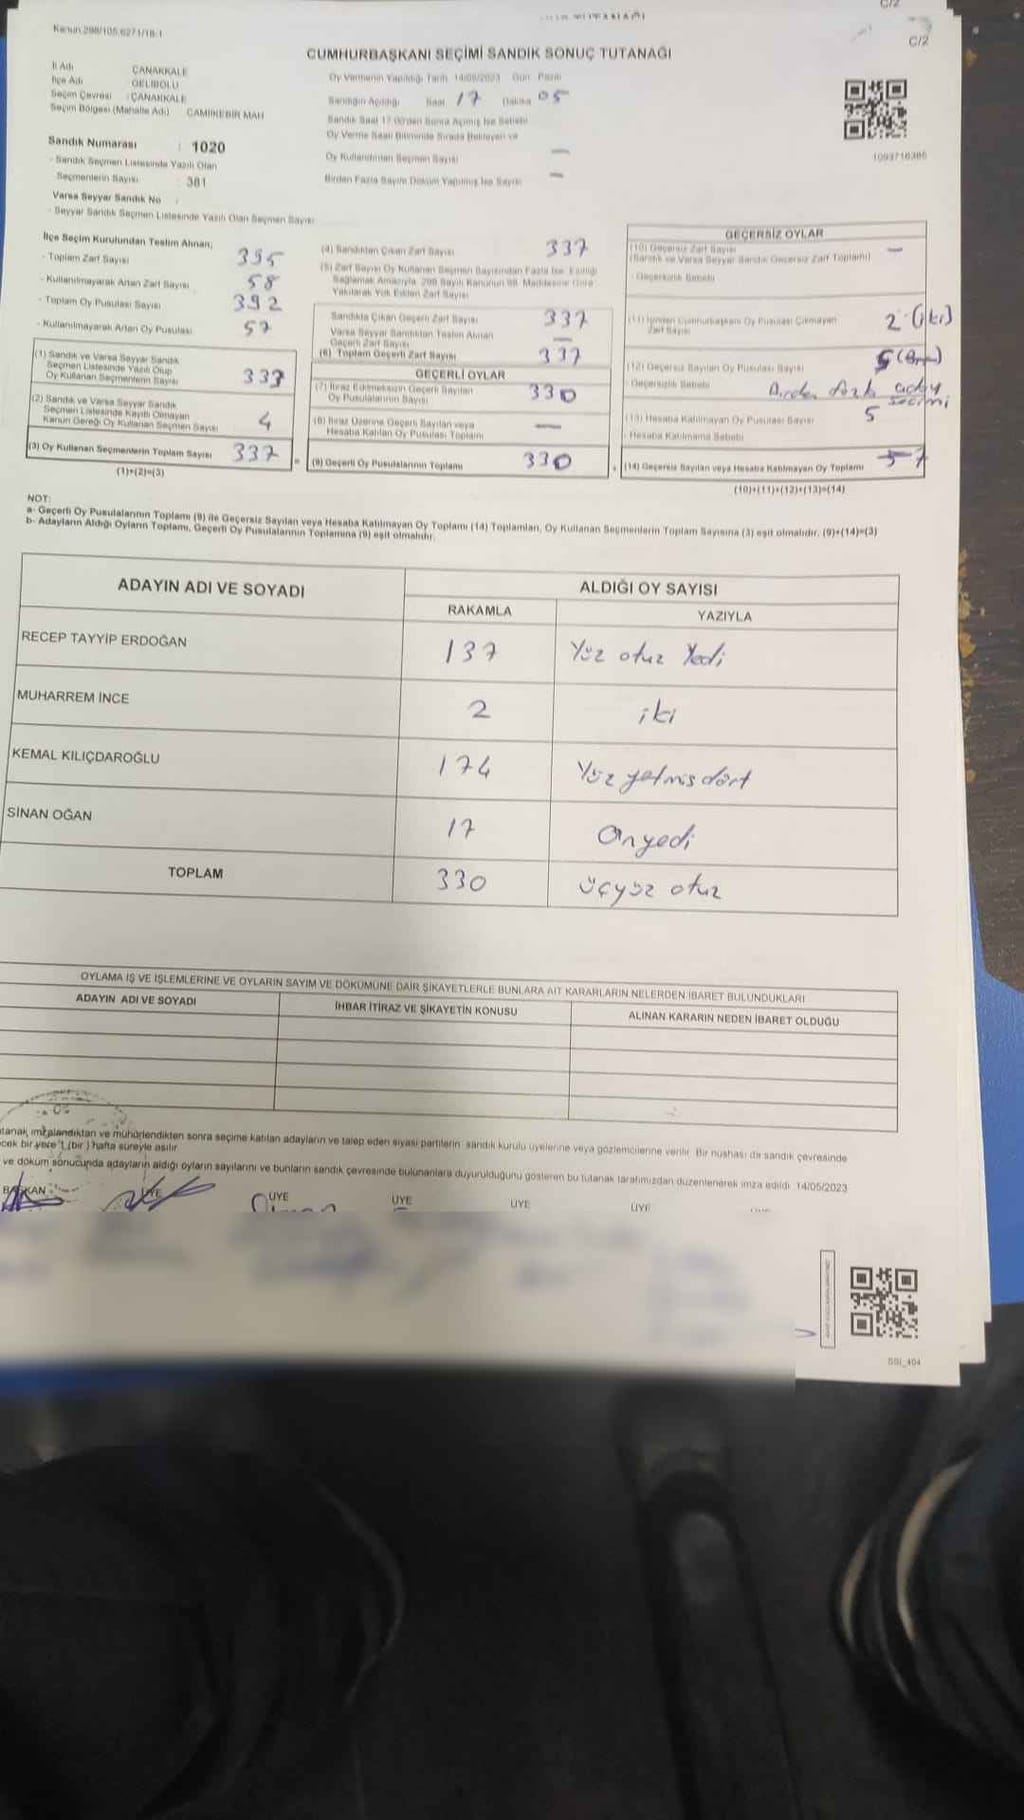 Kanun:298/105,6271/18-1
C/2
C/2
CUMHURBAŞKANI SEÇİMİ SANDIK SONUÇ TUTANAĞI
İl Adı ÇANAKKALE
İlçe Adı GELİBOLU
Seçim Çevresi : ÇANAKKALE
Seçim Bölgesi (Mahalle Adı) CAMİİKEBİR MAH
Oy Vermenin Yapıldığı Tarih 14/05/2023 Gün Pazar
Sandığın Açıldığı Saat 17 Dakika 05
Sandık Saat 17:00'den Sonra Açılmış İse Sebebi
Oy Verme Saati Bitiminde Sırada Bekleyen ve
Oy Kullandırılan Seçmen Sayısı —
Birden Fazla Sayım Döküm Yapılmış İse Sayısı —
1093716386
Sandık Numarası : 1020
- Sandık Seçmen Listesinde Yazılı Olan
Seçmenlerin Sayısı : 381
Varsa Seyyar Sandık No
- Seyyar Sandık Seçmen Listesinde Yazılı Olan Seçmen Sayısı
İlçe Seçim Kurulundan Teslim Alınan;
- Toplam Zarf Sayısı 395
- Kullanılmayarak Artan Zarf Sayısı 58
- Toplam Oy Pusulası Sayısı 392
- Kullanılmayarak Artan Oy Pusulası 57
(1) Sandık ve Varsa Seyyar Sandık
Seçmen Listesinde Yazılı Olup
Oy Kullanan Seçmenlerin Sayısı 333
(2) Sandık ve Varsa Seyyar Sandık
Seçmen Listesinde Kayıtlı Olmayan
Kanun Gereği Oy Kullanan Seçmen Sayısı 4
(3) Oy Kullanan Seçmenlerin Toplam Sayısı 337
(1)+(2)=(3)
(4) Sandıktan Çıkan Zarf Sayısı 337
(5) Zarf Sayısı Oy Kullanan Seçmen Sayısından Fazla İse Eşitliği
Sağlamak Amacıyla, 298 Sayılı Kanunun 98. Maddesine Göre
Yakılarak Yok Edilen Zarf Sayısı
Sandıkta Çıkan Geçerli Zarf Sayısı 337
Varsa Seyyar Sandıktan Teslim Alınan
Geçerli Zarf Sayısı —
(6) Toplam Geçerli Zarf Sayısı 337
GEÇERLİ OYLAR
(7) İtiraz Edilmeksizin Geçerli Sayılan
Oy Pusulalarının Sayısı 330
(8) İtiraz Üzerine Geçerli Sayılan veya
Hesaba Katılan Oy Pusulası Toplamı —
(9) Geçerli Oy Pusulalarının Toplamı 330
GEÇERSİZ OYLAR
(10) Geçersiz Zarf Sayısı —
(Sandık ve Varsa Seyyar Sandık Geçersiz Zarf Toplamı)
- Geçersizlik Sebebi
(11) İçinden Cumhurbaşkanı Oy Pusulası Çıkmayan
Zarf Sayısı 2 (iki)
(12) Geçersiz Sayılan Oy Pusulası Sayısı 5
- Geçersizlik Sebebi Birden fazla aday
seçimi
(13) Hesaba Katılmayan Oy Pusulası Sayısı 5
- Hesaba Katılmama Sebebi
(14) Geçersiz Sayılan veya Hesaba Katılmayan Oy Toplamı 7
(10)+(11)+(12)+(13)=(14)
NOT:
a- Geçerli Oy Pusulalarının Toplamı (9) ile Geçersiz Sayılan veya Hesaba Katılmayan Oy Toplamı (14) Toplamları, Oy Kullanan Seçmenlerin Toplam Sayısına (3) eşit olmalıdır. (9)+(14)=(3)
b- Adayların Aldığı Oyların Toplamı, Geçerli Oy Pusulalarının Toplamına (9) eşit olmalıdır.
ADAYIN ADI VE SOYADI ALDIĞI OY SAYISI
RAKAMLA YAZIYLA
RECEP TAYYİP ERDOĞAN 137 Yüz otuz Yedi
MUHARREM İNCE 2 iki
KEMAL KILIÇDAROĞLU 174 Yüz yetmiş dört
SİNAN OĞAN 17 Onyedi
TOPLAM 330 üçyüz otuz
OYLAMA İŞ VE İŞLEMLERİNE VE OYLARIN SAYIM VE DÖKÜMÜNE DAİR ŞİKAYETLERLE BUNLARA AİT KARARLARIN NELERDEN İBARET BULUNDUKLARI
ADAYIN ADI VE SOYADI İHBAR İTİRAZ VE ŞİKAYETİN KONUSU ALINAN KARARIN NEDEN İBARET OLDUĞU
tanak imzalandıktan ve mühürlendikten sonra seçime katılan adayların ve talep eden siyasi partilerin sandık kurulu üyelerine veya gözlemcilerine verilir. Bir nüshası da sandık çevresinde
cek bir yere 1 (bir) hafta süreyle asılır.
ve döküm sonucunda adayların aldığı oyların sayılarını ve bunların sandık çevresinde bulunanlara duyurulduğunu gösteren bu tutanak tarafımızdan düzenlenerek imza edildi. 14/05/2023
BAŞKAN ÜYE ÜYE ÜYE ÜYE ÜYE
SSI_404